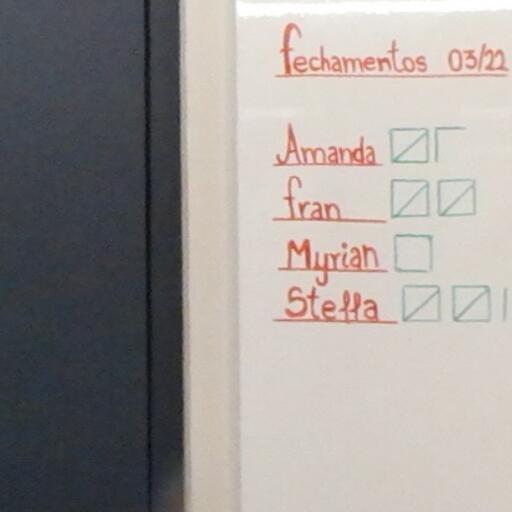 fechamentos 03/22
Amanda
fran
Myrian
Stella